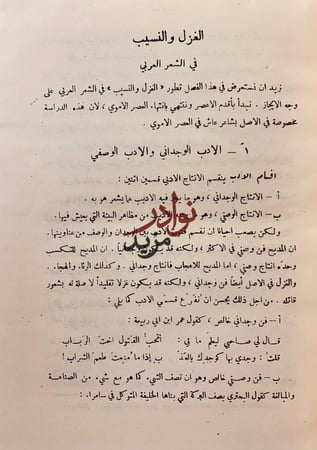 الغزل والنسيب
في الشعر العربي
نريد ان نستعرض في هذا الفصل تطور «الغزل والنسيب» في الشعر العربي على
وجه الايجاز . نبدأ بأقدم الاعصر وننتهي بانتهاء العصر الاموي ، لان هذه الدراسة
مخصوصة في الاصل بشاعر عاش في العصر الاموي .
١ – الادب الوجداني والادب الوصفي
اقسام الادب ينقسم الانتاج الادبي قسمين اثنين :
أ – الانتاج الوجداني، وهو الاديب عما يشعر هو به .
ب – الانتاج الوصفي ، وهو من مظاهر البيئة التي يعيش فيها .
ولكن يصعب احيانا ان الوجدان و الوصف من عناوينها.
ان المديح فن وصفي في الاكثر ، ولكنه قد . ان المديح للتكسب
وحده انتاج وصفي ، اما المديح للاعجاب فانتاج وجداني . وكذلك الرثاء والهجاء .
والغزل في الاصل أيضا فن وجداني ، ولكنه قد يكون غزلا تقليديا لا صلة له بشعور
قائله . من اجل ذلك يحسن ان قسمي الادب كما يلي :
أ – فن وجداني خالص ، كقول عمر ابن ابي ربيعة :
قال لي صاحبي ليعلم ما بي : أتحب القتول اخت الرباب
قلت : وجدي بها كوجدك بالعذ ب إذا ما منعت طعم الشراب
ب – فن وصفي خالص وهو ان تصف الشيء كما هو مع شيء من الصناعة
والمبالغة كقول البحتري يصف البركة التي بناها الخليفة المتوكل في سامرا :
نوادر
مزيد